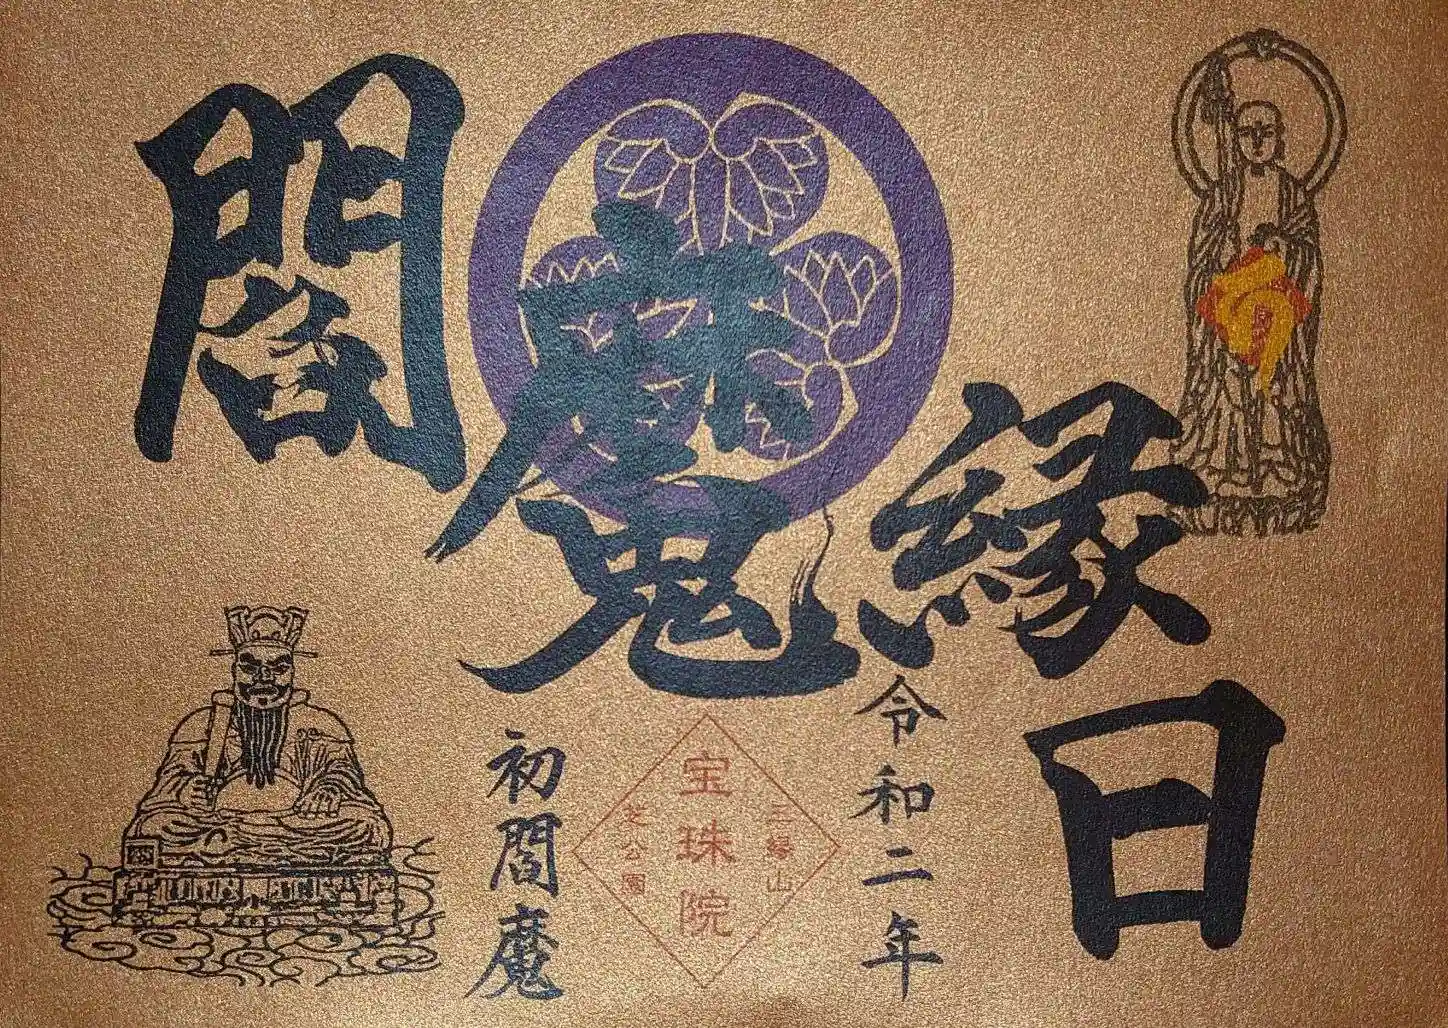 閻魔
縁日
令和二年
三縁山
宝珠院
芝公園
初閻魔